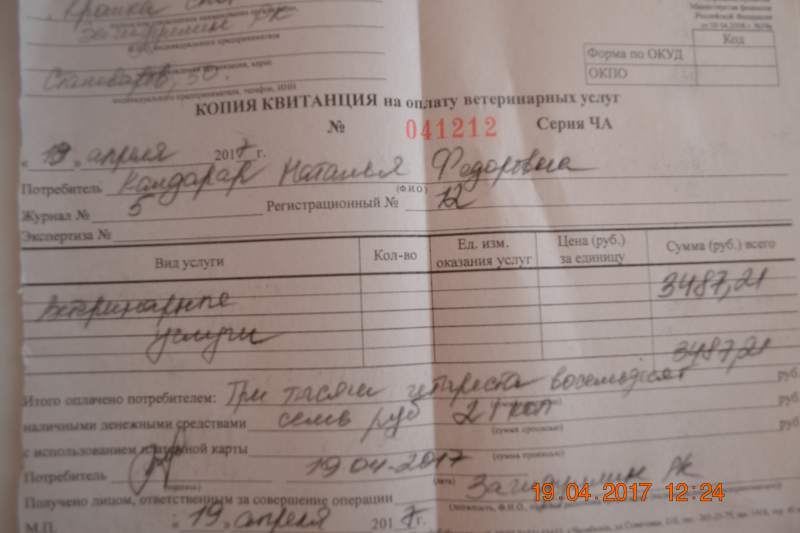 Министерства финансов
Российской Федерации
Код
Форма по ОКУД
ОКПО
КОПИЯ КВИТАНЦИЯ на оплату ветеринарных услуг
№ 041212 Серия ЧА
« 19 » апреля 2017 г.
Потребитель Кандарак Наталья Федоровна
(Ф.И.О.)
Журнал № 5 Регистрационный № 12
Экспертиза №
Вид услуги Кол-во Ед. изм. оказания услуг Цена (руб.) за единицу Сумма (руб.) всего
Ветеринарные 3487,21
услуги
3487,21
Итого оплачено потребителем: Три тысячи четыреста восемьдесят руб.
наличными денежными средствами семь руб 21 коп руб.
(сумма прописью)
с использованием платежной карты руб.
(сумма прописью)
Потребитель 19.04.2017
(подпись) (дата)
Получено лицом, ответственным за совершение операции
М.П. « 19 » апреля 2017 г.
19.04.2017 12:24